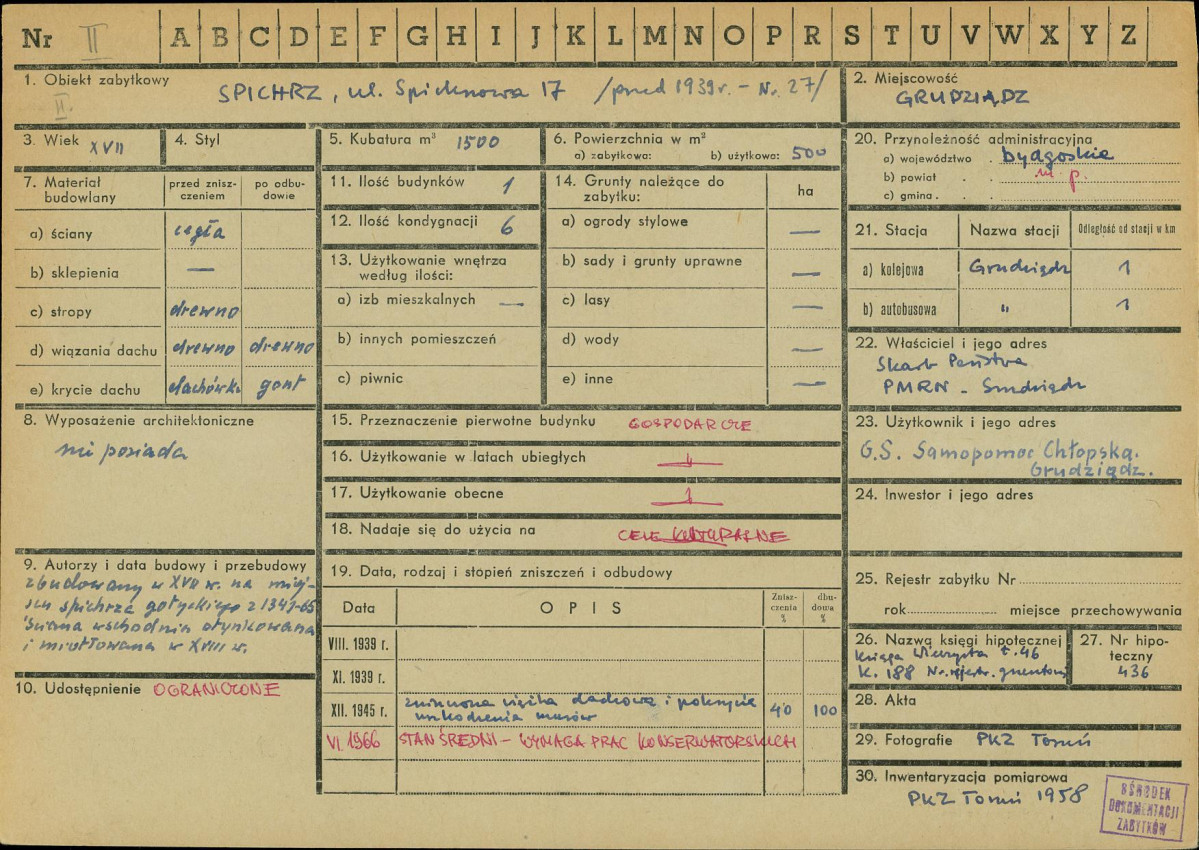 Nr II A B C D E F G H I J K L M N O P R S T U V W X Y Z
1. Obiekt zabytkowy
II.
SPICHRZ, ul. Spichrzowa 17 /przed 1939 r. - Nr. 27/
2. Miejscowość
GRUDZIĄDZ
3. Wiek XVII
4. Styl
5. Kubatura m³ 1500
6. Powierzchnia w m²
a) zabytkowa: b) użytkowa: 500
20. Przynależność administracyjna
a) województwo . bydgoskie
b) powiat . m. p.
c) gmina . .
7. Materiał budowlany
przed znisz-
czeniem
po odbu-
dowie
a) ściany cegła
b) sklepienia —
c) stropy drewno
d) wiązania dachu drewno drewno
e) krycie dachu dachówka gont
11. Ilość budynków 1
12. Ilość kondygnacji 6
13. Użytkowanie wnętrza
według ilości:
a) izb mieszkalnych —
b) innych pomieszczeń
c) piwnic
14. Grunty należące do
zabytku:
ha
a) ogrody stylowe —
b) sady i grunty uprawne —
c) lasy —
d) wody —
e) inne —
21. Stacja Nazwa stacji Odległość od stacji w km
a) kolejowa Grudziądz 1
b) autobusowa " 1
22. Właściciel i jego adres
Skarb Państwa
PMRN - Grudziądz
8. Wyposażenie architektoniczne
nie posiada
15. Przeznaczenie pierwotne budynku GOSPODARCZE
16. Użytkowanie w latach ubiegłych
17. Użytkowanie obecne
18. Nadaje się do użycia na CELE KULTURALNE
23. Użytkownik i jego adres
G.S. Samopomoc Chłopska.
Grudziądz.
24. Inwestor i jego adres
9. Autorzy i data budowy i przebudowy
zbudowany w XVII w. na miej-
scu spichrza gotyckiego z 1341-65
Ściana wschodnia otynkowana
i w XVIII w.
10. Udostępnienie OGRANICZONE
19. Data, rodzaj i stopień zniszczeń i odbudowy
Data OPIS
Znisz-
czenia
%
dbu-
dowa
%
VIII. 1939 r.
XI. 1939 r.
XII. 1945 r. zniszczona więźba dachowa i pokrycie
uszkodzenia murów 40 100
VI. 1966 STAN ŚREDNI - WYMAGA PRAC KONSERWATORSKICH
25. Rejestr zabytku Nr
rok miejsce przechowywania
26. Nazwa księgi hipotecznej
księga Wieczysta t. 46
K. 188 Nr. rejestr. gruntowy
27. Nr hipo-
teczny
436
28. Akta
29. Fotografie PKZ Toruń
30. Inwentaryzacja pomiarowa
PKZ Toruń 1958
OŚRODEK
DOKUMENTACJI
ZABYTKÓW